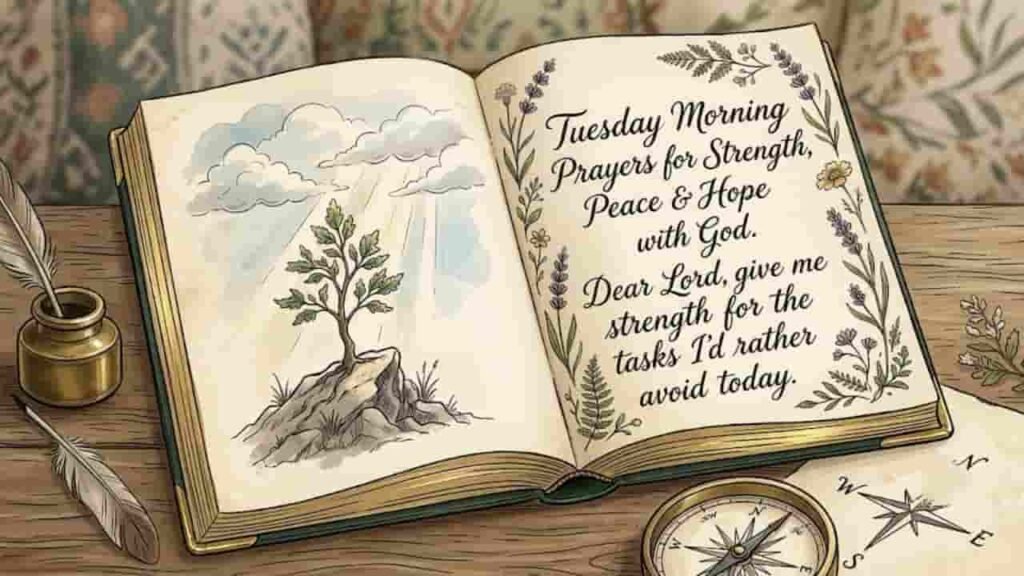 Tuesday Morning
Prayers for Strength,
Peace & Hope
with God.
Dear Lord, give me
strength for the
tasks I'd rather
avoid today.
N
W
E
S
N
W
E